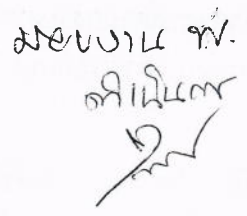 มอบงาน พ.
ดำเนินการ